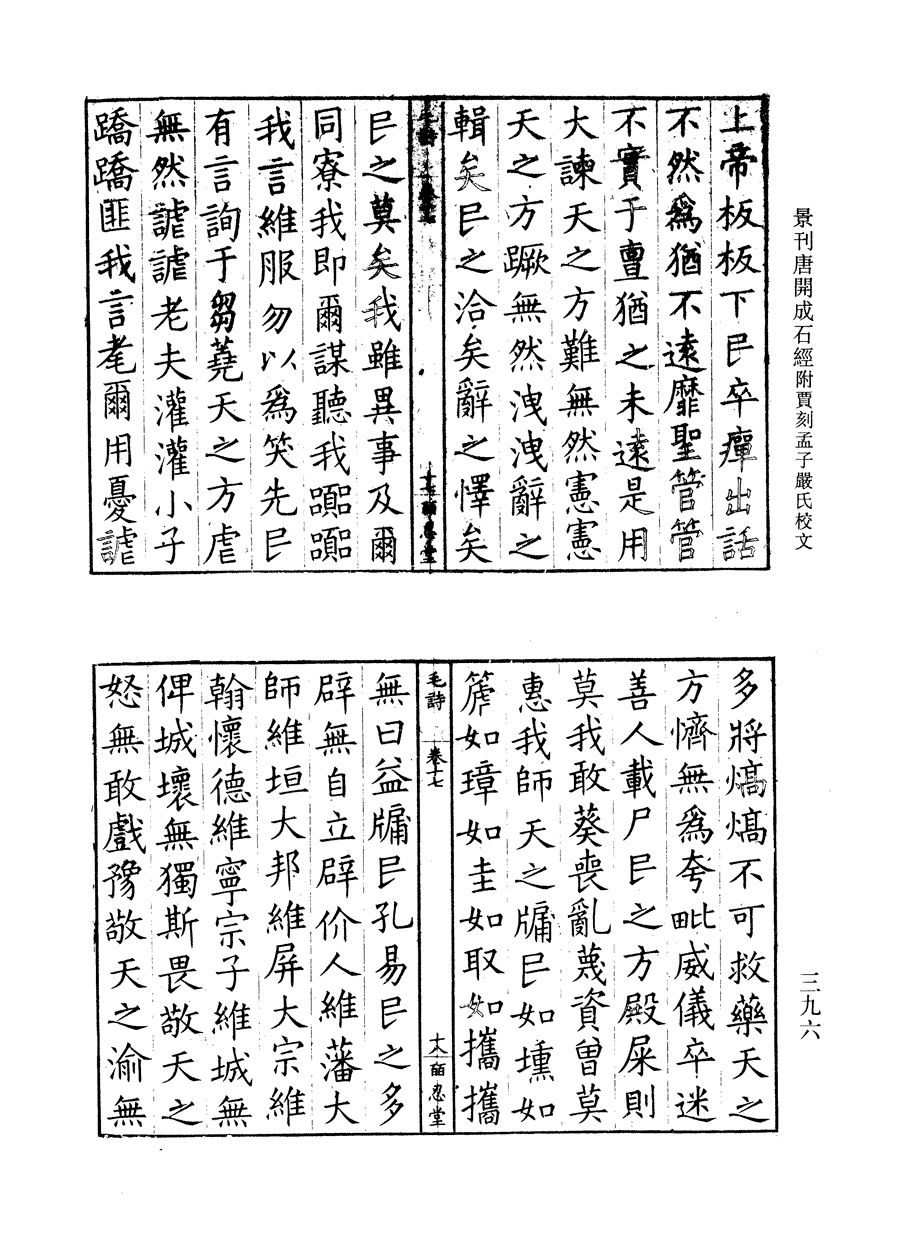 景刊唐開成石經附賈刻孟子嚴氏校文
上帝板板下民卒癉出話
不然爲猶不遠靡聖管管
不實于亶猶之未遠是用
大諫天之方難無然憲憲
天之方蹶無然洩洩辭之
輯矣民之洽矣辭之懌矣
毛詩 卷十七 十七 皕忍堂
民之莫矣我雖異事及爾
同寮我即爾謀聽我嚻嚻
我言維服勿以爲笑先民
有言詢于芻蕘天之方虐
無然謔謔老夫灌灌小子
蹻蹻匪我言耄爾用憂謔
多將熇熇不可救藥天之
方懠無爲夸毗威儀卒迷
善人載尸民之方殿屎則
莫我敢葵喪亂蔑資曾莫
惠我師天之牖民如壎如
篪如璋如圭如取如攜攜
毛詩 卷十七 十八 皕忍堂
無曰益牖民孔易民之多
辟無自立辟价人維藩大
師維垣大邦維屏大宗維
翰懷德維寧宗子維城無
俾城壞無獨斯畏敬天之
怒無敢戲豫敬天之渝無
三九六